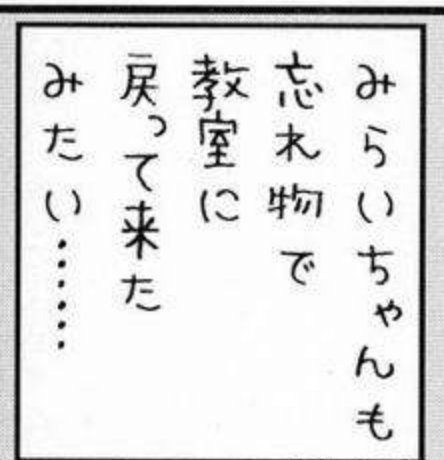 みらいちゃんも
忘れ物で
教室に
戻って来た
みたい……